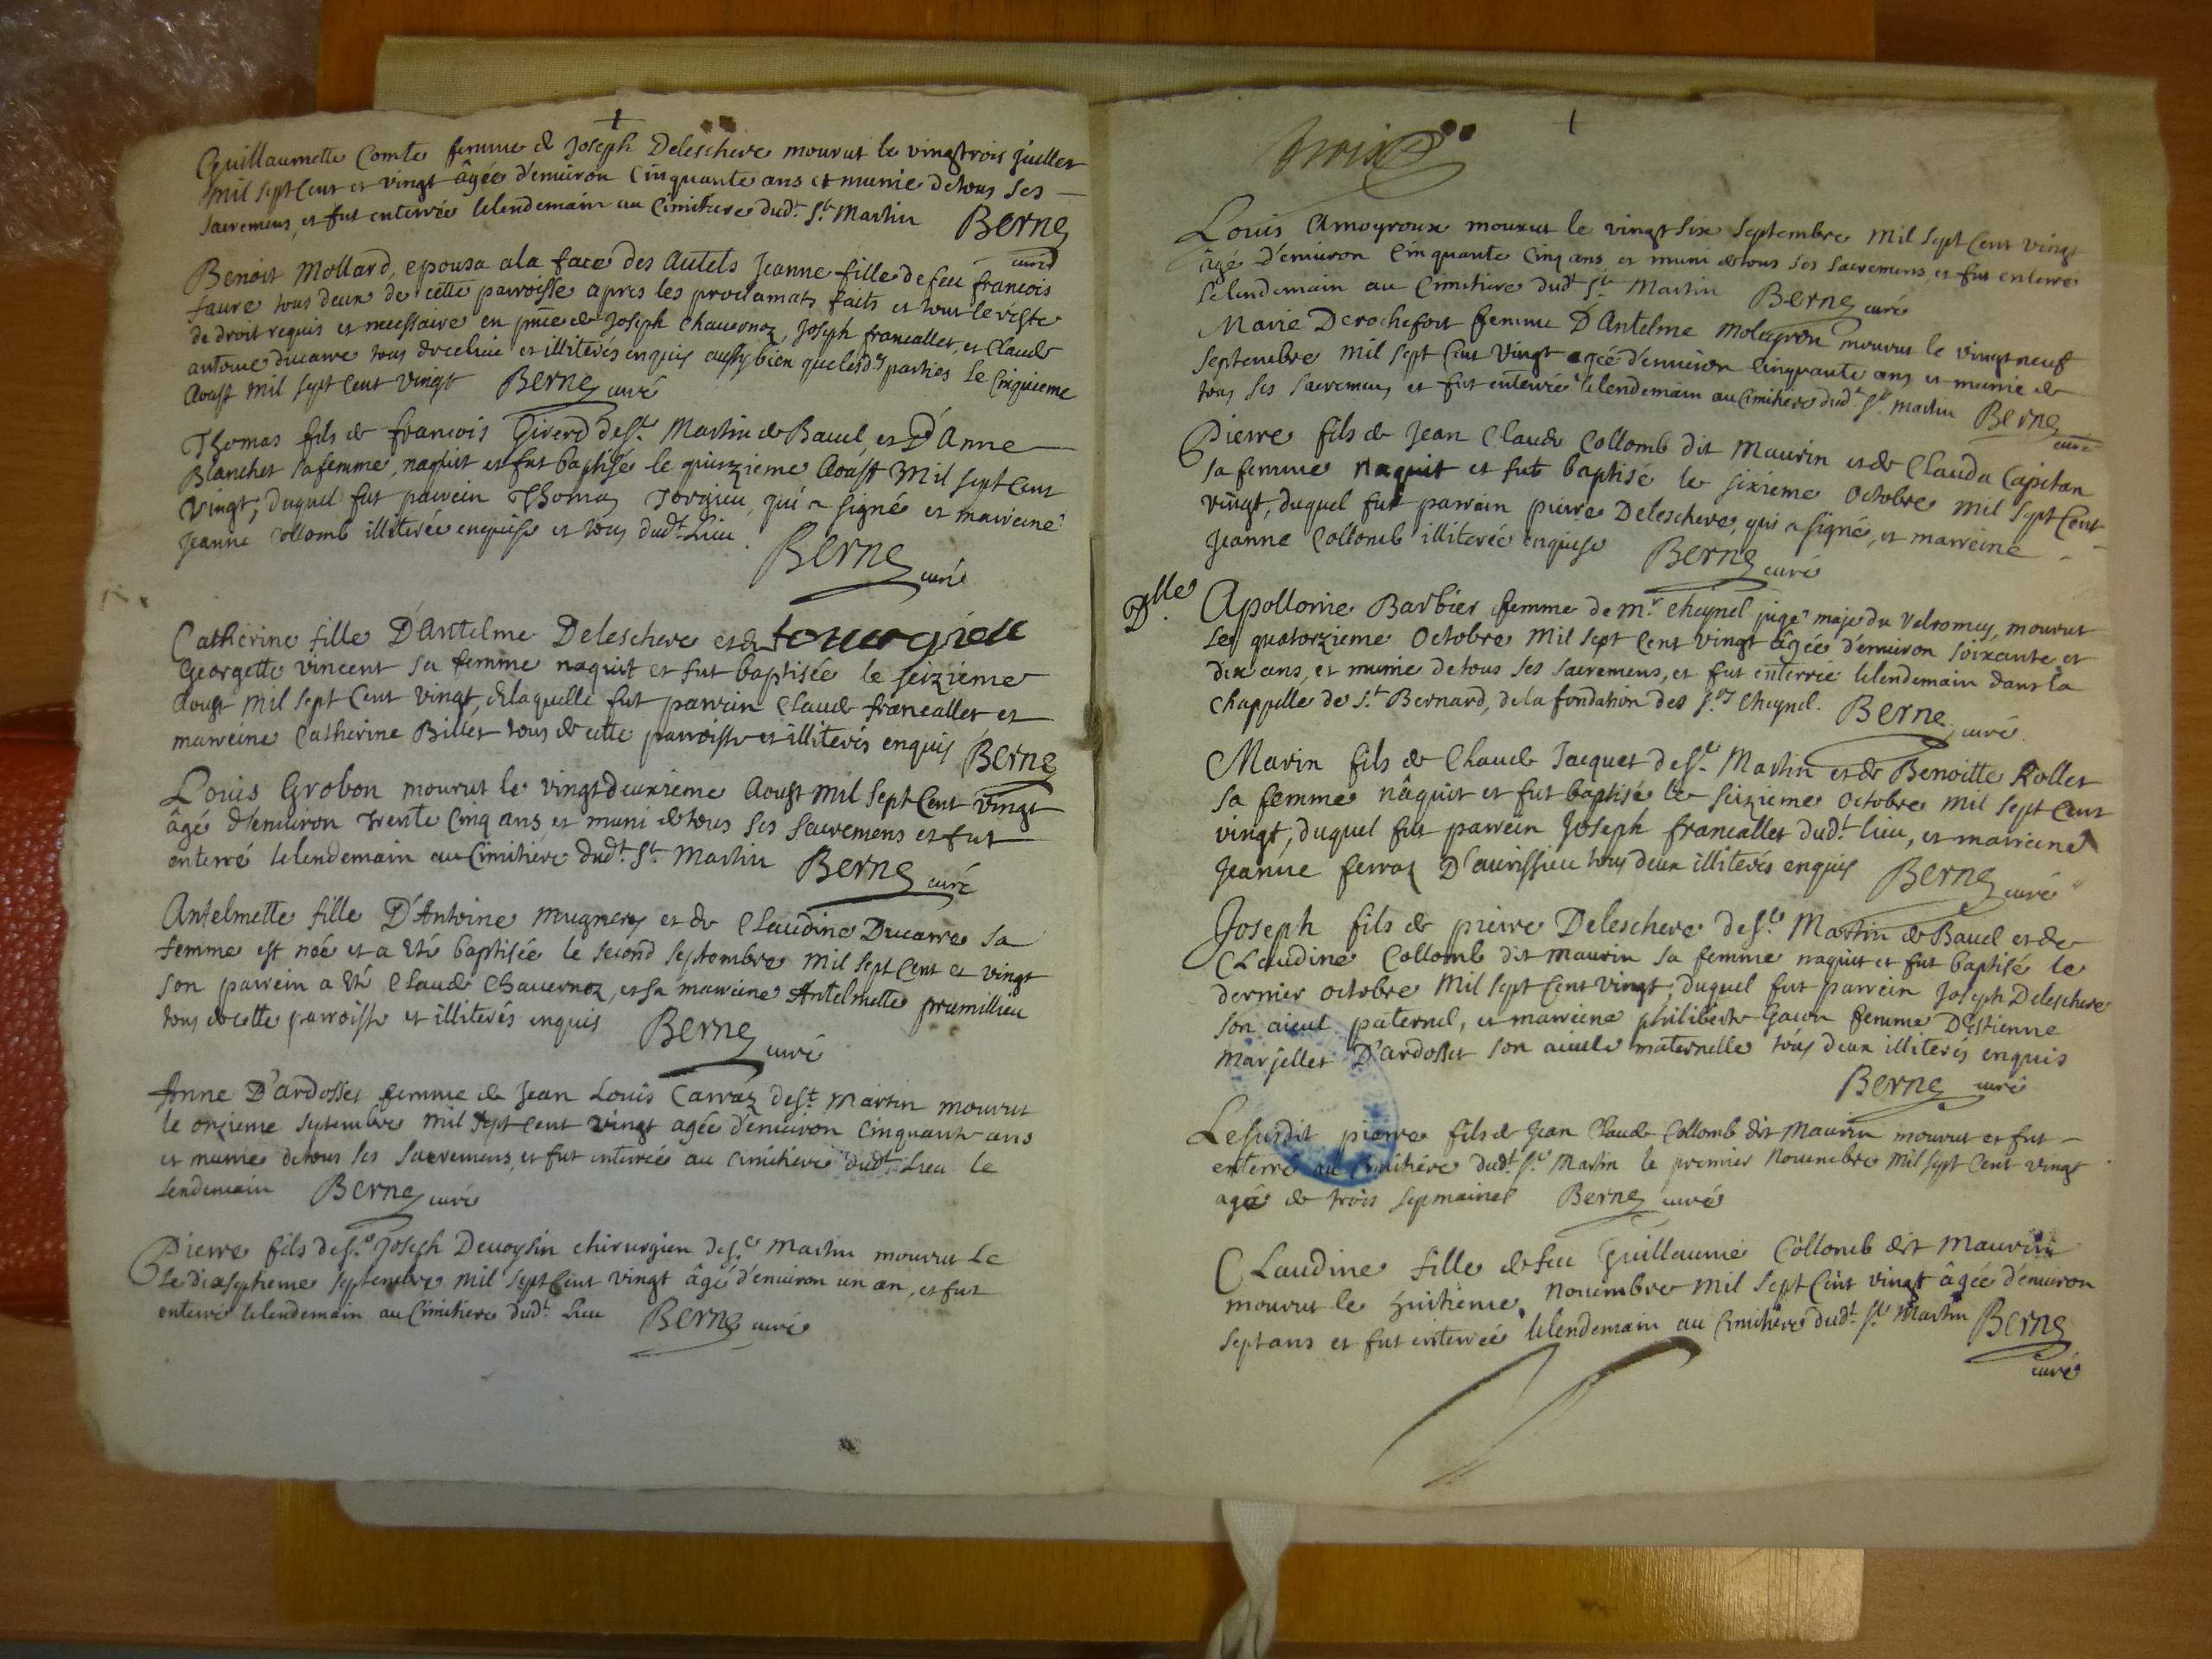 Guillaumette Comte femme de Joseph Deleschere mourut le vingtrois Juillet
mil sept Cent et vingt âgée d'enuiron Cinquante ans et munie detous ses
sacremens, et fut enterrée lelendemain au Cimitiere dudt. St. Martin Berne
curé
Benoit Mollard, epousa ala face des Autels Jeanne fille de feu francois
faure tous deux de cette parroisse apres les proclamats faits et tout le reste
de droit requis et necessaire en pnce de Joseph Chauernoz, Joseph francallet, et Claude
antoine ducarre tous dece lieu et illiterés enquis aussy bien que lesds. parties Le Cinquieme
Aoust mil sept Cent vingt Berne curé
Thomas fils de francois Girerd de St. Martin de Bauel et D'Anne
Blanchet sa femme, naquit et fut baptisé le quinzieme Aoust Mil sept Cent
Vingt, duquel fut parrein Thomas Torgieu, qui a signé et marreine
Jeanne Collomb illiterée enquise et tous dudt. Lieu. Berne curé
Catherine fille D'Antelme Deleschere et de tourgieu
Georgette vincent sa femme naquit et fut baptisée le seizieme
Aoust mil sept Cent vingt, de laquelle fut parrein Claude francallet et
marreine Catherine Billet tous de cette parroisse et illiterés enquis Berne
Louis Grobon mourut le vingtdeuxieme Aoust mil sept Cent vingt
âgé d'enuiron Trente Cinq ans et muni detous ses sacremens et fut
enterré lelendemain au Cimitiere dudt. St. Martin Berne curé
Antelmette fille D'Antoine Mugnery et de Claudine Ducarre sa
femme est née et a Eté baptisée le second septembre mil sept Cent et vingt
son parrein a Eté Claude Chauernoz, et sa marreine Antelmette prumillieu
tous de cette parroisse et illiterés enquis Berne curé
Anne D'ardosset femme de Jean Louis Carraz de St. Martin mourut
le onzieme septembre mil sept Cent vingt agée d'enuiron Cinquante ans
et munie detous ses sacremens, et fut enterrée au Cimitiere dudt. Lieu le
lendemain Berne curé
Pierre fils de Sr. Joseph Deuoysin chirurgien de St. Martin mourut Le
le dixseptieme septembre mil sept Cent vingt âgé d'enuiron un an, et fut
enterré lelendemain au Cimitiere dudt. Lieu Berne curé
trois
Louis Amoyroux mourut le vingt six septembre mil sept Cent vingt
âgé d'enuiron Cinquante Cinq ans et muni detous ses sacremens, et fut enterré
lelendemain au Cimitiere dudt. St. Martin Berne curé
Marie Derochefort femme D'Antelme Molagron mourut le vingtneuf
septembre mil sept Cent vingt agée d'enuiron Cinquante ans et munie de
tous ses sacremens et fut enterrée lelendemain au Cimitiere dudt. St. Martin Berne
curé
Pierre fils de Jean Claude Collomb dit Maurin et de Clauda Capitan
sa femme Naquit et fut baptisé le sixieme Octobre mil sept Cent
vingt, duquel fut parrain pierre Deleschere, qui a signé, et marreine
Jeanne Collomb illiterée enquise Berne curé
Dlle. Apollonie Barbier femme de mr. Cheynel juge maje du Valromey, mourut
Le quatorzieme Octobre mil sept Cent vingt âgée d'enuiron soixante et
dix ans, et munie detous ses sacremens, et fut enterrée lelendemain dans la
chappelle de St. Bernard, dela fondation des Srs. Cheynel. Berne curé
Marin fils de Claude Jacquet de St. Martin et de Benoitte Rollet
sa femme nâquit et fut baptisé le seizieme Octobre mil sept Cent
vingt, duquel fut parrein Joseph francallet dudt. lieu, et marreine
Jeanne ferraz D'aurissieu tous deux illiterés enquis Berne curé
Joseph fils de pierre Deleschere de St. Martin de Bauel et de
Claudine Collomb dit maurin sa femme naquit et fut baptisé le
dernier octobre mil sept Cent vingt, duquel fut parrein Joseph Deleschere
son aieul paternel, et marreine philiberte Gacon femme D'Estienne
Marjollet D'ardosset son aieule maternelle tous deux illiterés enquis
Berne curé
Lesusdit pierre fils de Jean Claude Collomb dit Maurin mourut et fut
enterré au Cimitiére dudt. St. Martin le premier Nouembre mil sept Cent vingt
agé de trois sepmaines Berne curé
Claudine fille de feu Guillaume Collomb dit Maurin
mourut le huitieme Nouembre mil sept Cent vingt âgée d'enuiron
sept ans et fut enterrée lelendemain au Cimitiere dudt. St. Martin Berne
curé